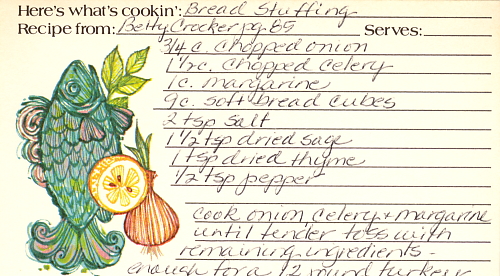 Here's what's cookin': Bread Stuffing
Recipe from: Betty Crocker pg. 85 Serves:
3/4 c. chopped onion
1 1/2 c. chopped celery
1 c. margarine
9 c. soft bread cubes
2 tsp salt
1 1/2 tsp dried sage
1 tsp dried thyme
1/2 tsp pepper
cook onion celery + margarine
until tender toss with
remaining ingredients -
enough for a 12 pound turkey